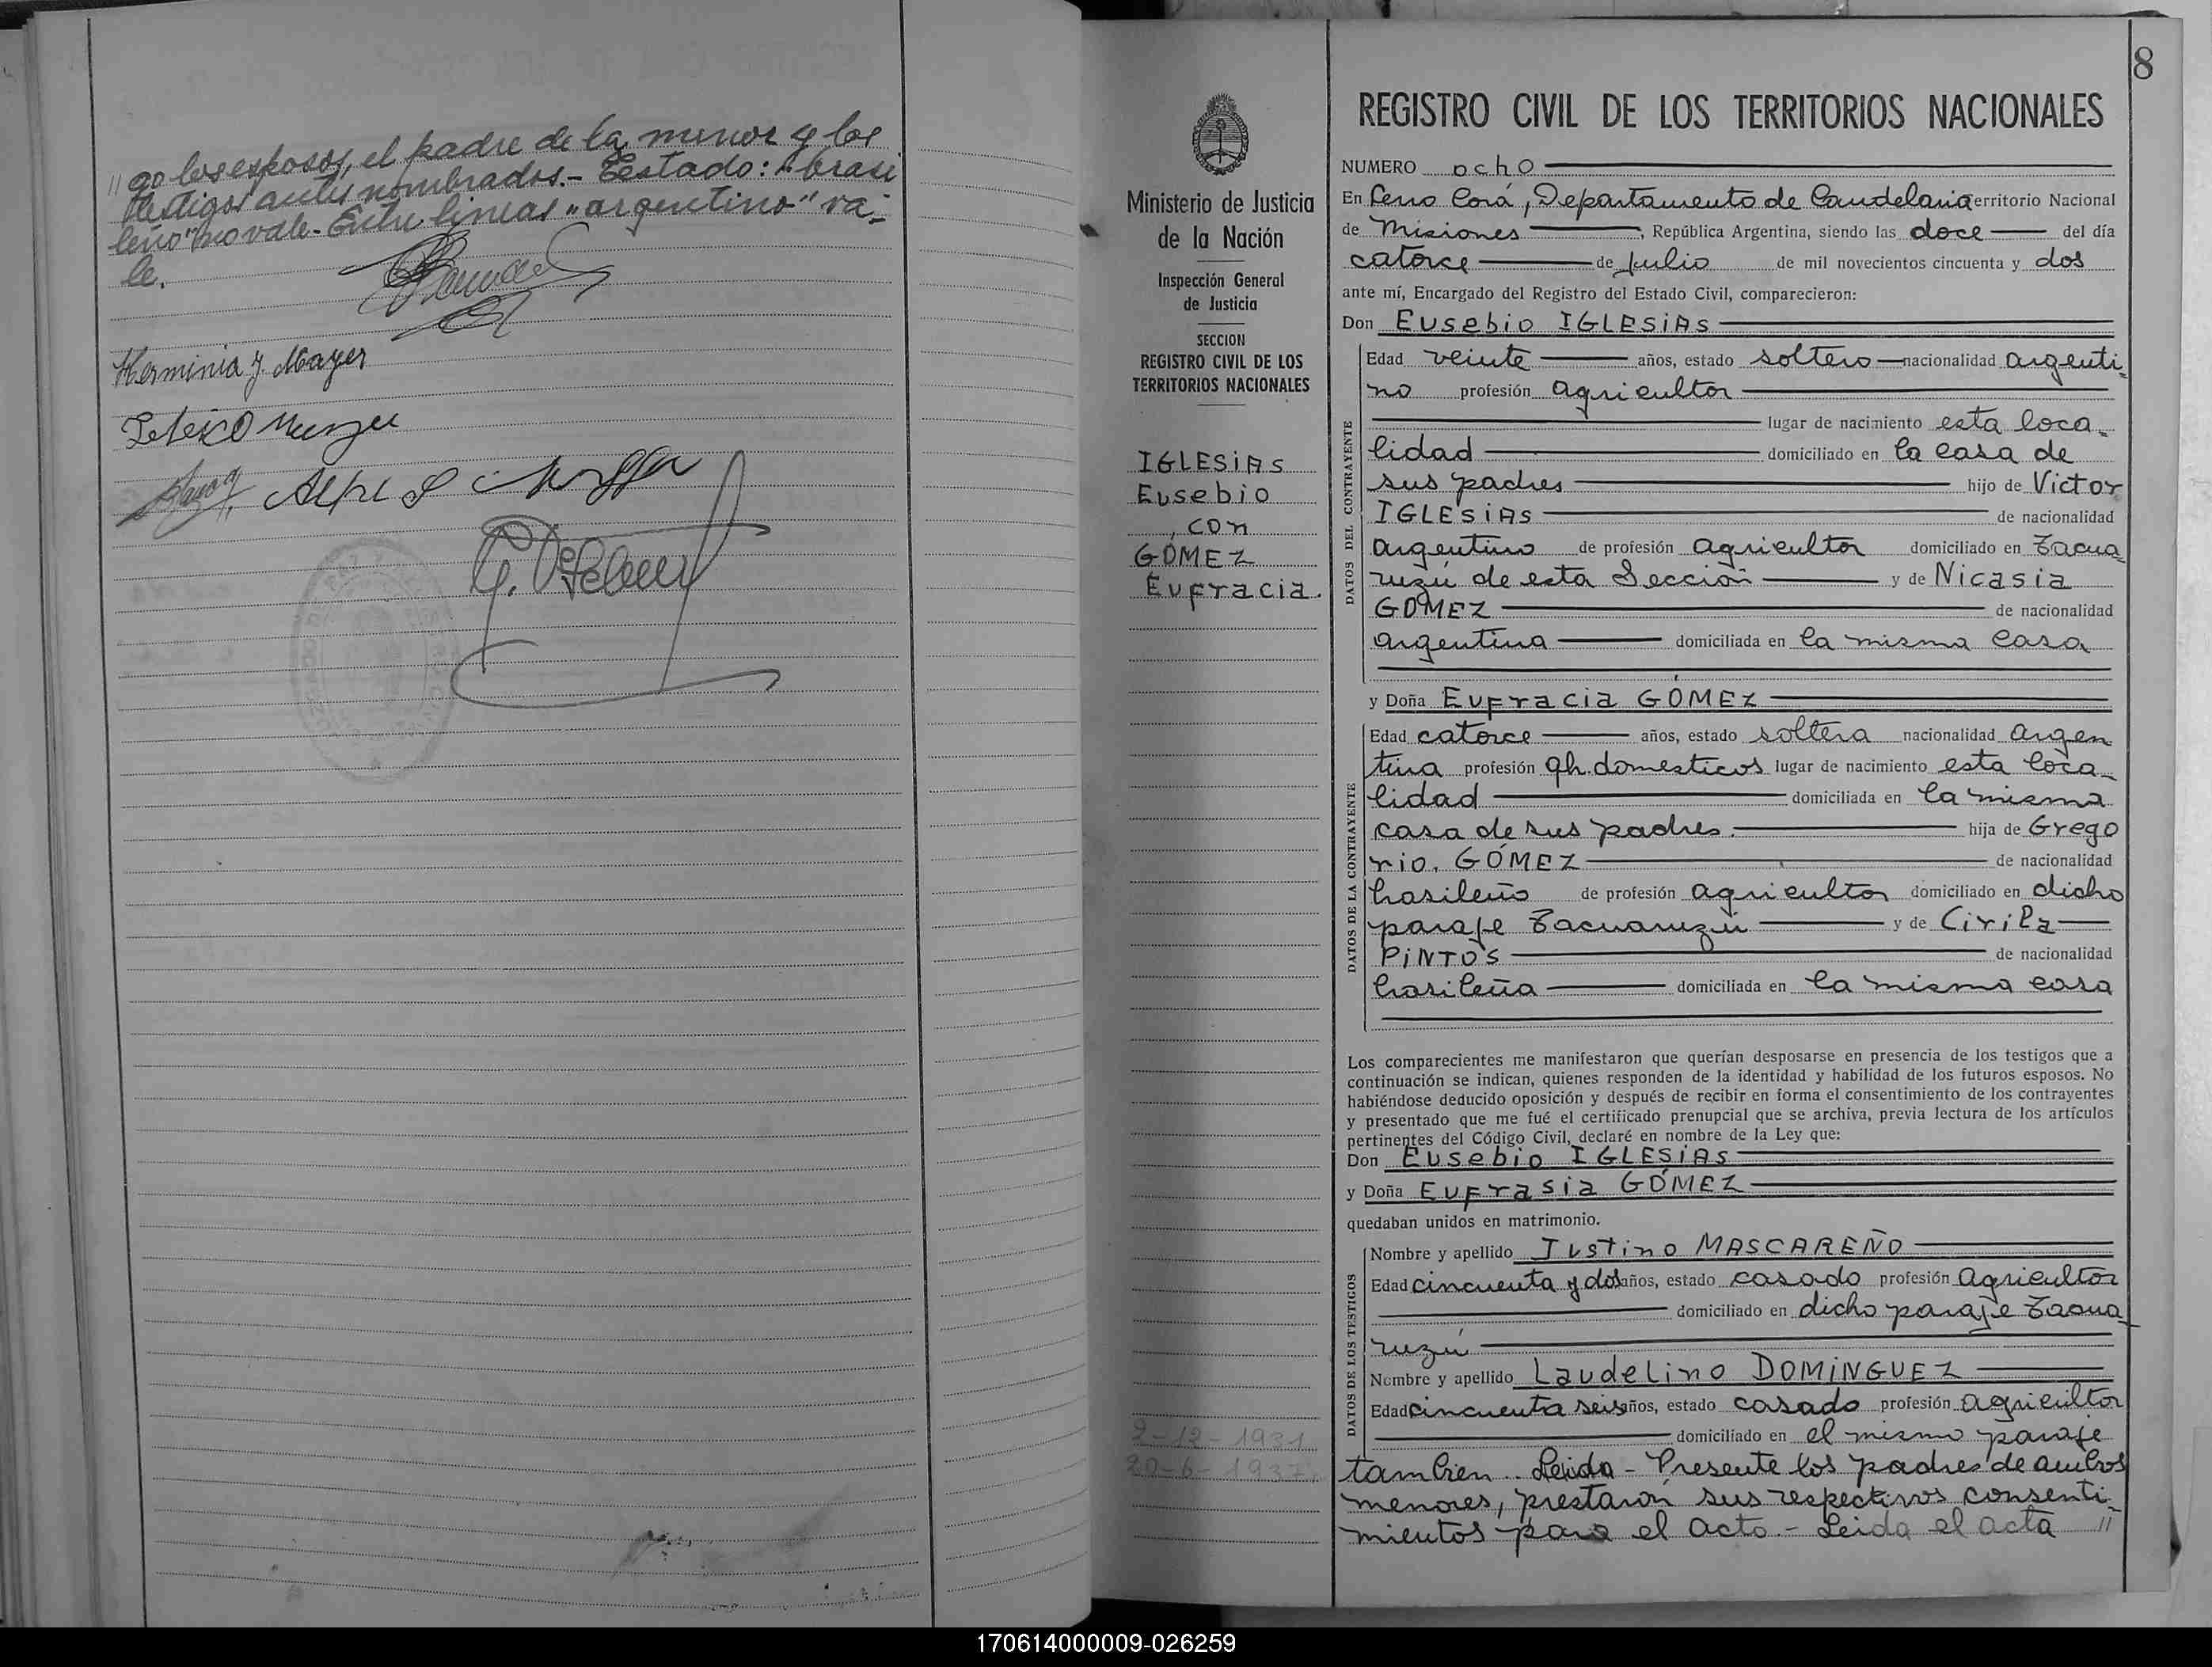 // go los esposos, el padre de la menor y los
testigos antes nombrados.- Testado: "brasi
leño" no vale.- Entre lineas "argentino" va-
le.
Herminia J. Mayer
8
Ministerio de Justicia
de la Nación
Inspección General
de Justicia
SECCION
REGISTRO CIVIL DE LOS
TERRITORIOS NACIONALES
IGLESIAS
Eusebio
con
GÓMEZ
Eufracia.
2-12-1931
20-6-1937.
REGISTRO CIVIL DE LOS TERRITORIOS NACIONALES
NUMERO ocho
En Cerro Corá, Departamento de Candelaria territorio Nacional
de Misiones, República Argentina, siendo las doce del día
catorce de julio de mil novecientos cincuenta y dos
ante mí, Encargado del Registro del Estado Civil, comparecieron:
Don Eusebio IGLESIAS
DATOS DEL CONTRAYENTE
Edad veinte años, estado soltero nacionalidad argenti-
no profesión agricultor
lugar de nacimiento esta loca-
lidad domiciliado en la casa de
sus padres hijo de Victor
IGLESIAS de nacionalidad
argentino de profesión agricultor domiciliado en Tacua-
ruzú de esta Sección y de Nicasia
GOMEZ de nacionalidad
argentina domiciliada en la misma casa
y Doña Eufracia GÓMEZ
DATOS DE LA CONTRAYENTE
Edad catorce años, estado soltera nacionalidad argen
tina profesión qh. domesticos lugar de nacimiento esta loca-
lidad domiciliada en la misma
casa de sus padres. hija de Grego
rio. GÓMEZ de nacionalidad
brasileño de profesión agricultor domiciliado en dicho
paraje Tacuaruzú y de Cirila
PINTOS de nacionalidad
brasileña domiciliada en la misma casa
Los comparecientes me manifestaron que querían desposarse en presencia de los testigos que a
continuación se indican, quienes responden de la identidad y habilidad de los futuros esposos. No
habiéndose deducido oposición y después de recibir en forma el consentimiento de los contrayentes
y presentado que me fué el certificado prenupcial que se archiva, previa lectura de los artículos
pertinentes del Código Civil, declaré en nombre de la Ley que:
Don Eusebio IGLESIAS
y Doña Eufrasia GÓMEZ
quedaban unidos en matrimonio.
DATOS DE LOS TESTIGOS
Nombre y apellido Justino MASCAREÑO
Edad cincuenta y dos años, estado casado profesión agricultor
domiciliado en dicho paraje Tacua-
ruzú
Nombre y apellido Laudelino DOMINGUEZ
Edad cincuenta seis años, estado casado profesión agricultor
domiciliado en el mismo paraje
tambien.. Leida - Presente los padres de ambos
menores, prestaron sus respectivos consenti-
mientos para el acto.- Leida el acta //
170614000009-026259